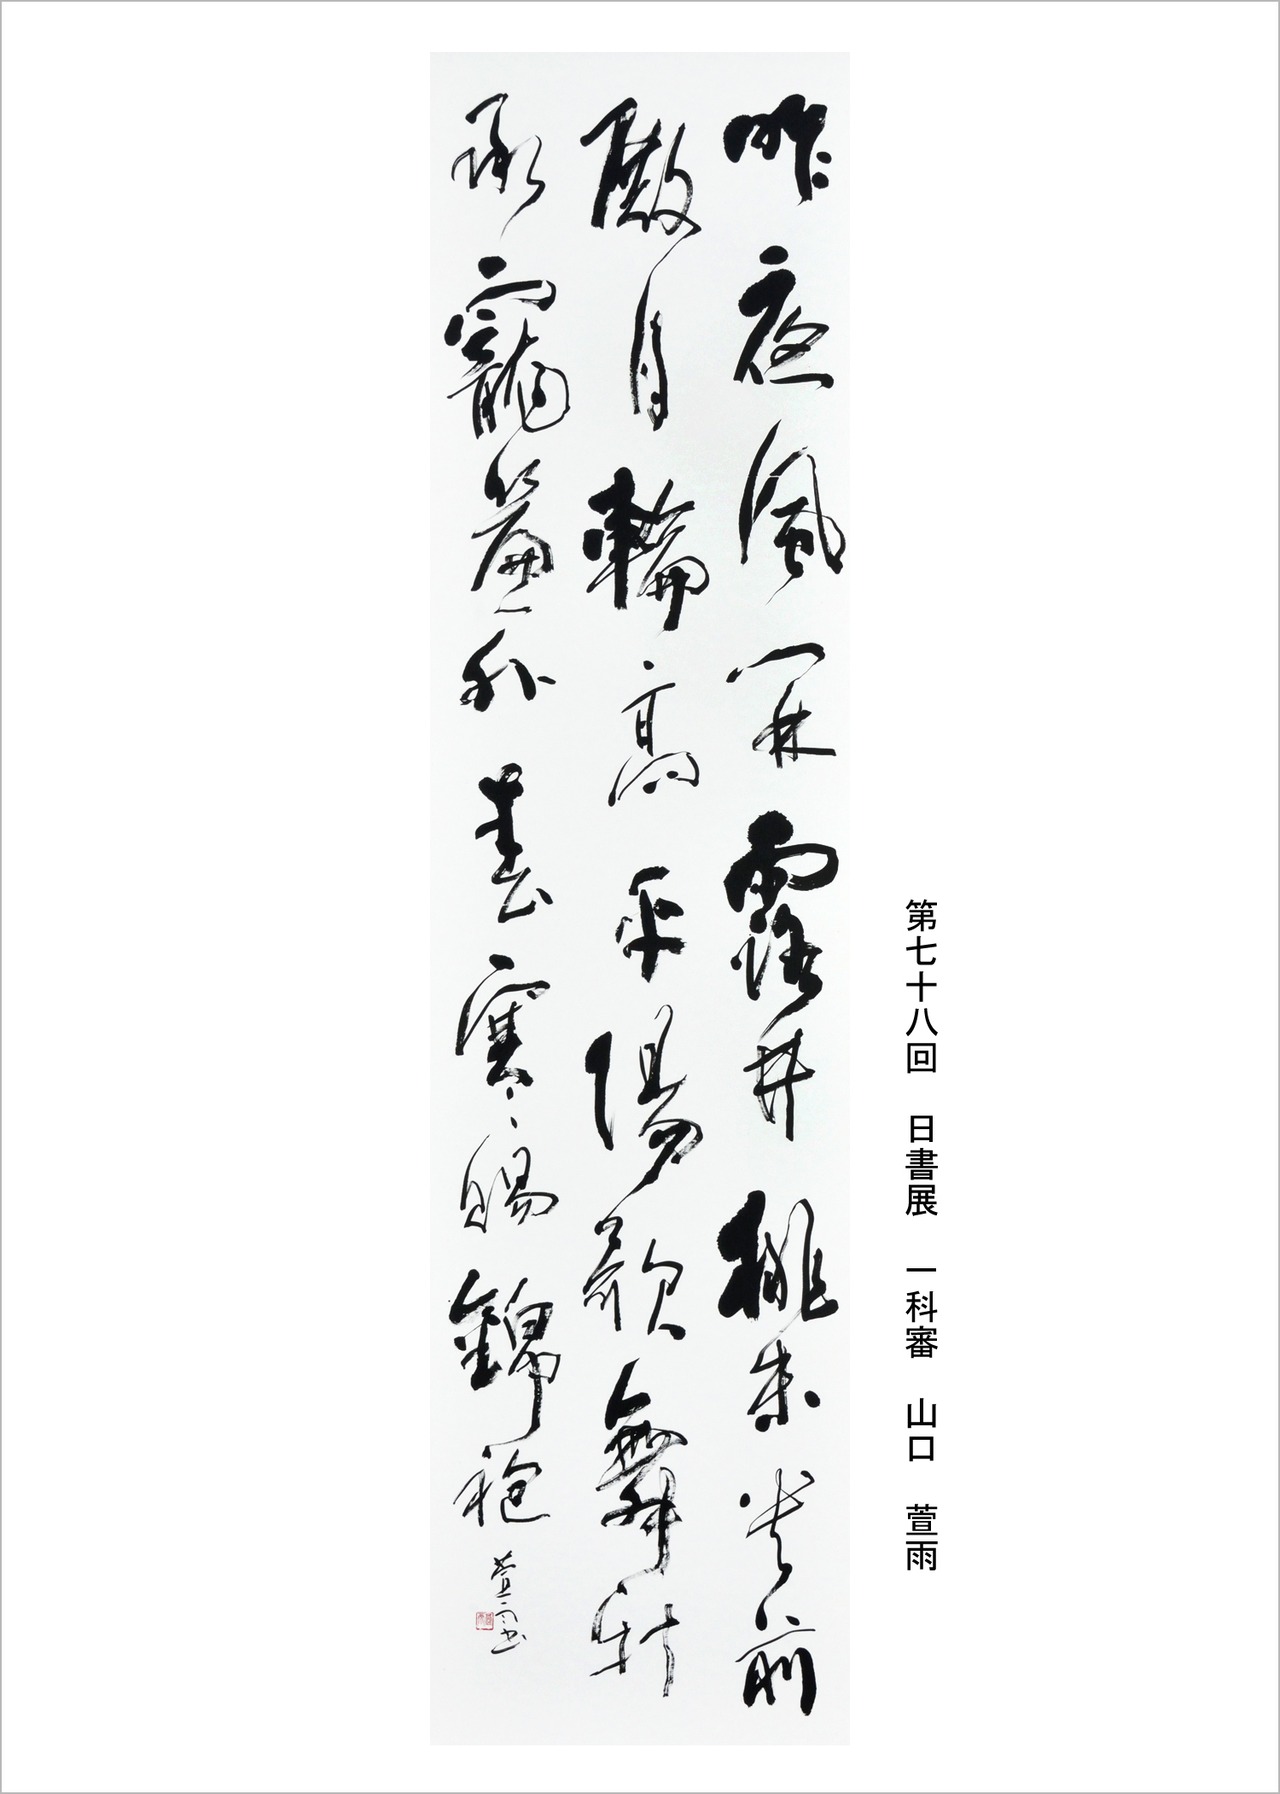 昨夜風開露井桃未央前
殿月輪高平陽歌舞新
承寵簾外春寒賜錦袍
萱雨書
第七十八回 日書展 一科審 山口 萱雨